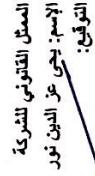 الممثل القانوني للشركة
الإسم: يحى عز الدين نور
التوقيع: